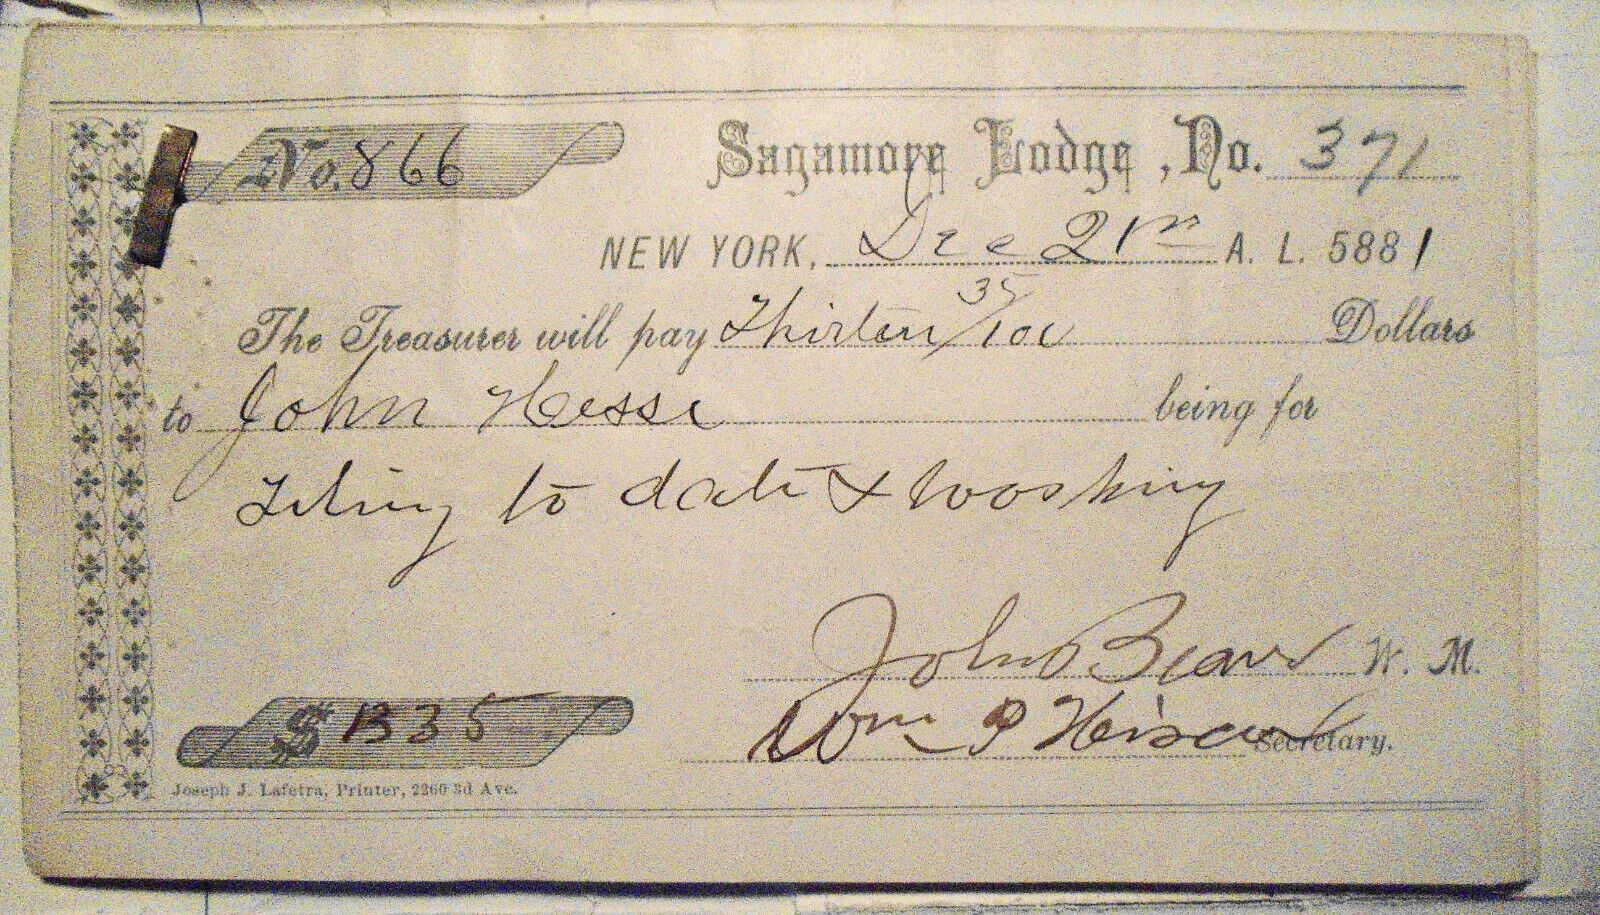 No. 866
Sagamore Lodge, No. 371
NEW YORK, Dec 21 A. L. 5881
The Treasurer will pay Thirteen 35/100 Dollars
to John Hesse being for
Tiling to date & Washing
John W. M.
Wm P Secretary.
$ 13 35
Joseph J. Lafetra, Printer, 2260 3d Ave.